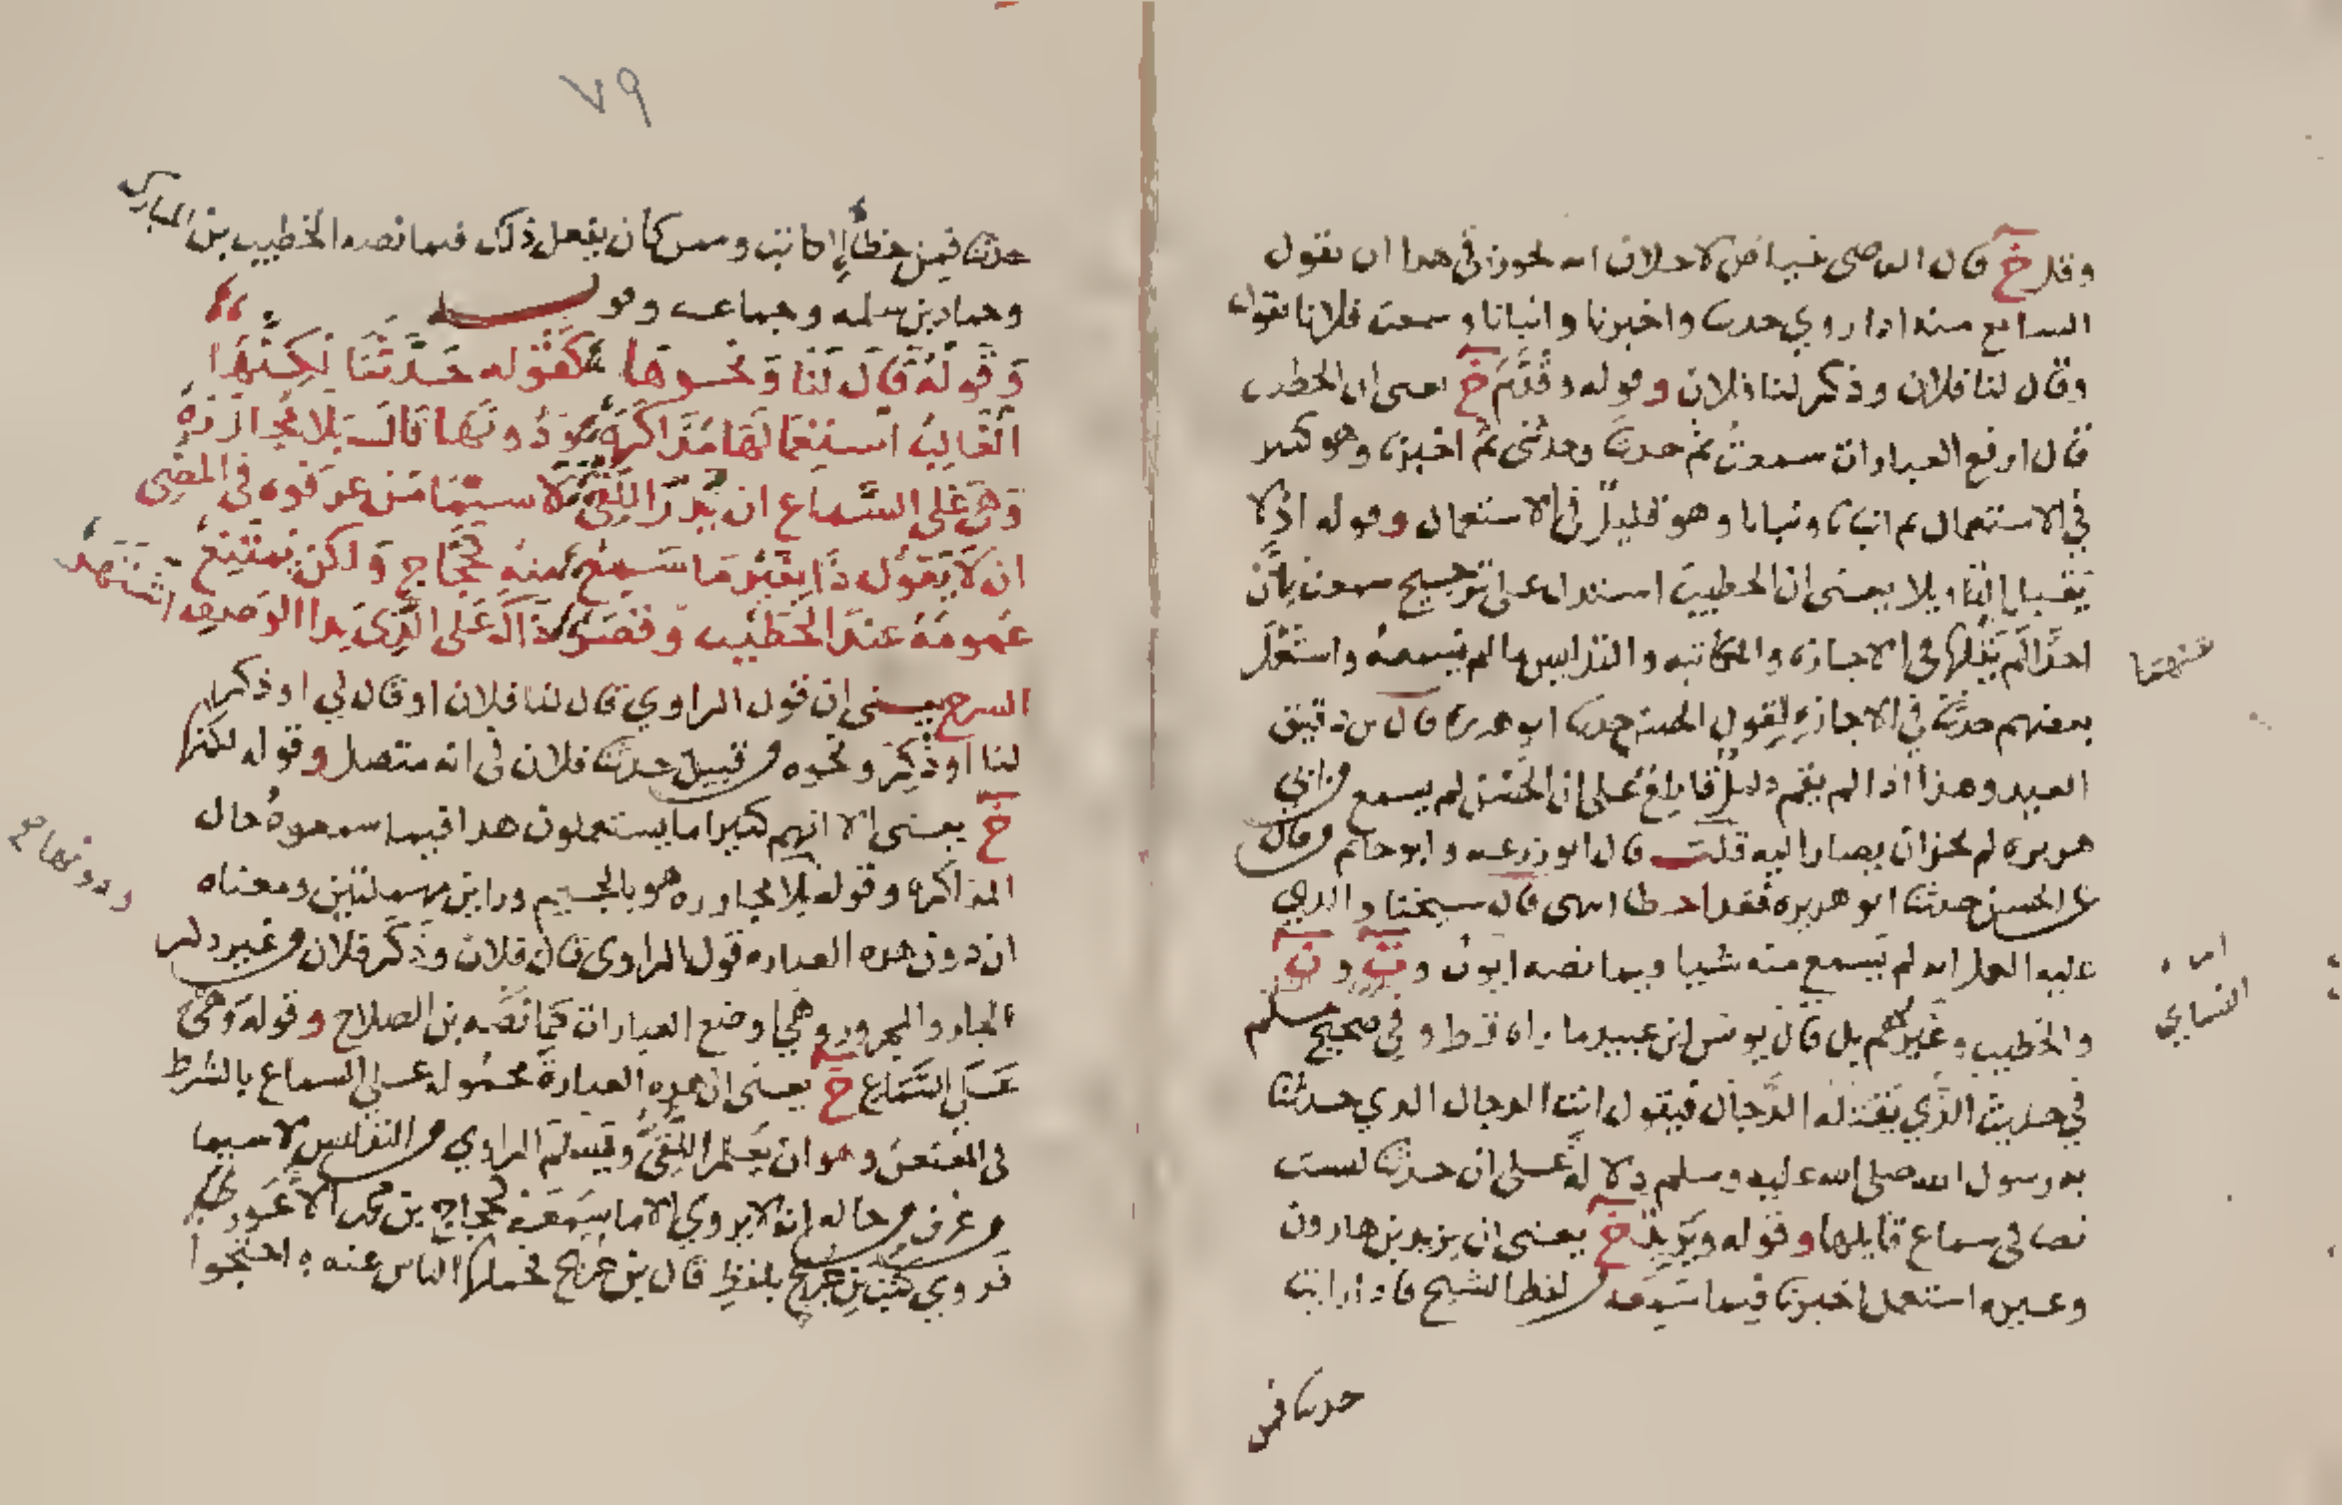 وقد خ قال القاضي عياض لا خلاف انه يجوز في هذا ان يقول
السامع منه اذا روي حدثنا واخبرنا وانبانا وسمعت فلانا يقول
وقال لنا فلان وذكر لنا فلان وقوله وقدم خ يعني ان الخطيب
قال ارفع العبارات سمعت ثم حدثنا وحدثني ثم اخبرنا وهو كثير
في الاستعمال ثم انبانا ونبانا وهو قليل في الاستعمال وقوله اذ لا
يقبل التاويلا يعني ان الخطيب استدل على ترجيح سمعت بان
احدا لم يقلها في الاجازة والمكاتبه والتدليس ما لم يسمعه واستعمل
عنهما
بعضهم حدثنا في الاجازة لقول الحسن حدثنا ابو هريرة قال بن دقيق
العيد وهذا اذا لم يقم دليل قاطع على ان الحسن لم يسمع من ابي
هريره لم يجز ان يصار اليه قلت قال ابو زرعه وابو حاتم من قال
عن الحسن حدثنا ابو هريره فقد اخطا انتهى قال شيخنا والذي
عليه العمل انه لم يسمع منه شيا وبهما نصه ايوب و ت و ن
النساي
والخطيب وغيرهم بل قال يونس ابن عبيد ما راه قط وفي صحيح مسلم
في حديث الذي يقتله الدجال فيقول انت الدجال الذي حدثنا
به رسول الله صلى الله عليه وسلم دلالة على ان حدثنا ليست
نصا في سماع قايلها وقوله ويزيد خ يعني ان يزيد بن هارون
وغيره استعمل اخبرنا فيما سمعه من لفظ الشيخ
حدثنا فمن
٧٩
حدثنا فمن خطا الكاتب وممن كان يفعل ذلك فيما نصه الخطيب بن المبارك
وحماد بن سلمه وجماعه وقوله
وقوله قال لنا ونحوها كقوله حدثنا لكنها
الغالب استعمالها مذاكره ودونها قال بلا مجاررة
وهي على السماع ان يدر اللقي لا سيما من عرفوه في المضي
ان لا يقول ذا بغير ما سمع منه كحجاج ولكن يمتنع
عمومه عند الخطيب وقصر ذاك على الذي بذا الوصف اشتهر
الشرح يعني ان قول الراوي قال لنا فلان او قال لي او ذكر
لنا او ذكر ونحوه من قبيل حدثنا فلان في انه متصل وقوله لكنها
خ يعني الا انهم كثيرا ما يستعملون هذا فيما سمعوه حال
المذاكرة وقوله بلا مجارره هو بالجيم وراين مهملتين ومعناه
ودونها
ان دون هذه العباره قول الراوي قال فلان وذكر فلان من غير ذكر
الجار والمجرور وهي اوضع العبارات كما نصه بن الصلاح وقوله وهي
على السماع خ يعني ان هذه العبارة محموله على السماع بالشرط
في المعنعن وهو ان يعلم اللقي وسلم الراوي من التدليس لا سيما
من عرف من حاله انه لا يروي الا ما سمعه كحجاج بن محمد الاعور
فروي كتب بن جريج بلفظ قال بن جريج فحملها الناس عنه واحتجوا